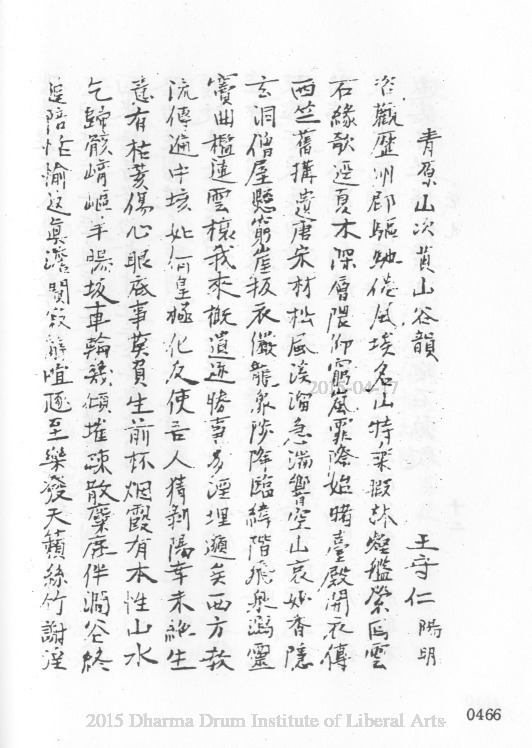 青原山次黃山谷韻
王守仁陽明
咨觀歷州郡驅馳倦風埃名山特乘暇林壑盤縈回雲
石緣欹逕夏木深層隈仰窮嵐霏際始睹臺殿開衣傳
西竺舊搆遺唐宋材松風溪溜急湍響空山哀妙香隱
玄洞僧屋懸窮崖扳衣儼龍象陟降臨緯階飛泉瀉靈
竇曲檻連雲榱我來慨遺迹勝事多湮埋邈矣西方教
流傳遍中垓如何皇極化反使吾人猜剝陽幸未絕生
意有枯荄傷心眼底事莫負生前杯烟霞有本性山水
乞歸骸崎嶇羊腸坂車輪幾傾摧踈散麋鹿伴澗谷終
追陪恬愉返真澹闃寂辭喧豗至樂發天籟絲竹謝淫
2015-04-17
0466
2015 Dharma Drum Institute of Liberal Arts